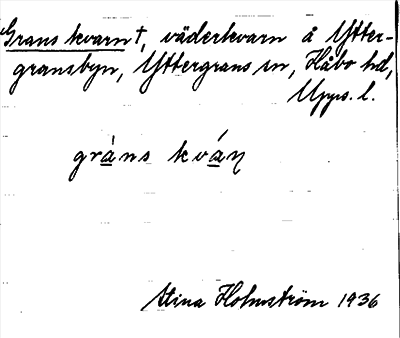 Grans kvarn †, väderkvarn å Ytter-
gransbyn, Yttergrans sn, Håbo hd,
Upps. l.
gràns kváɳ
Stina Holmström 1936